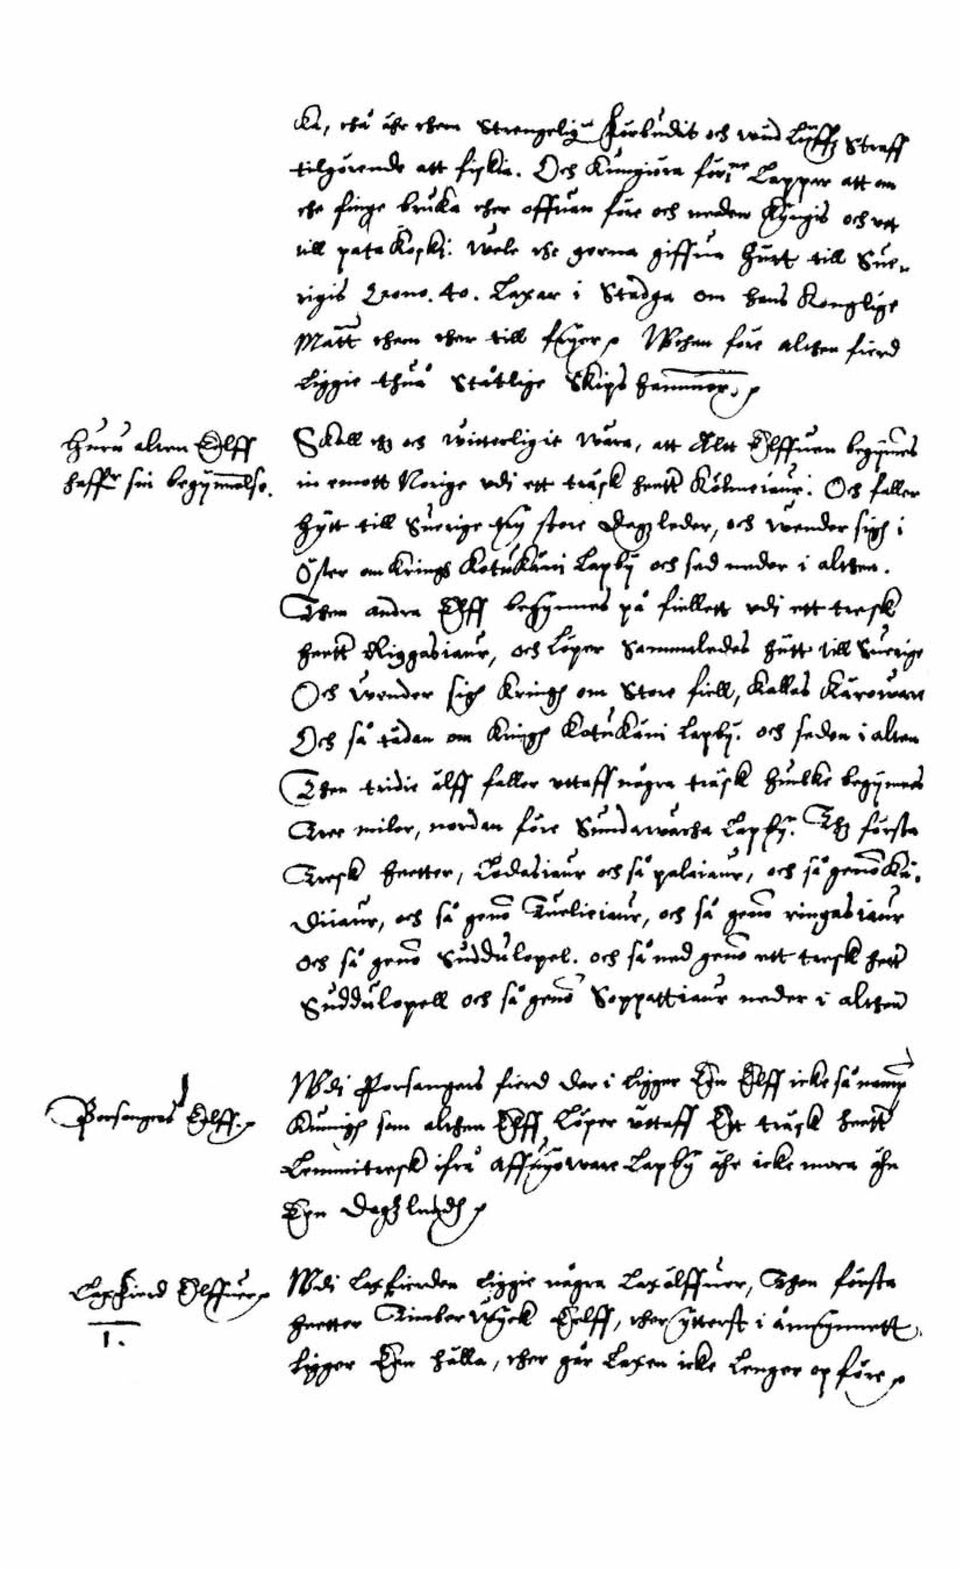 ka, thå ähr them Strengelig:n förbudit och wid Lijffz Straff
tilgörende att fiskia. Och Kungiöra förne Lappar att om
the finge bruka ther offuan före och neden Kängis och utt
till pataKoski. Wele the gerna giffua hütt till Sue-
rigis Crono. 40. Laxar i Stadga om hans Konglige
Matt them ther till frijer Uthan före althen fierd
liggie thuå Ståtlige Skips hammer.
Huru alten Elff
haffr sin begynnelse.
Skall thz och Witterligit Wara, att Alte Elffuen begijnnes
in emott Norige udi ett träsk heetr Kölmeiaur: Och faller
hÿtt till Suerige try store dagzleder, och Wender sigh i
Öster om Kringh KotuKäni Lapbÿ och sed neder i althen.
Then andra Elff begynnes på fiellett udi ett tresk
heetr Riggasiaur, och Löper Sammaledes hÿtt till Suerige
Och Wender sigh Kringh om Store fiell, Kallas Käroware
Och så tädan om Kringh Kotukäni Lapbÿ. och seden i alten
Then tridie älff faller uttaff några träsk huilke begijnnes
Tree miler, nordan före Sundawacha Lapbÿ. Thz första
Tresk heetter, Lodasiaur och så palaiaur, och så genō Kä-
diiaur, och så genō Tuelieiaur, och så genō ringasiaur
och så genō Suddulopel. och så ned genō ett tresk hetr
Suddulopell och så genō Soppattiaur neder i althen
Porsangers Elff.
Udi Porsangers fierd der i ligger Een Elff icke så namp
Kunigh som althen Elff Löper uttaff Ett träsk heetr
Lemmitresk ifrå Affuyoware Lapbÿ ähr icke mera ähn
Een dagzledh
Laxefierd Elffuer
1.
Udi Laxfierden liggie några Laxälffuer, Then första
heetter TimberWyck Eelff, ther ytterst i åmynnett
ligger Een hälla, ther går Laxen icke lenger op före